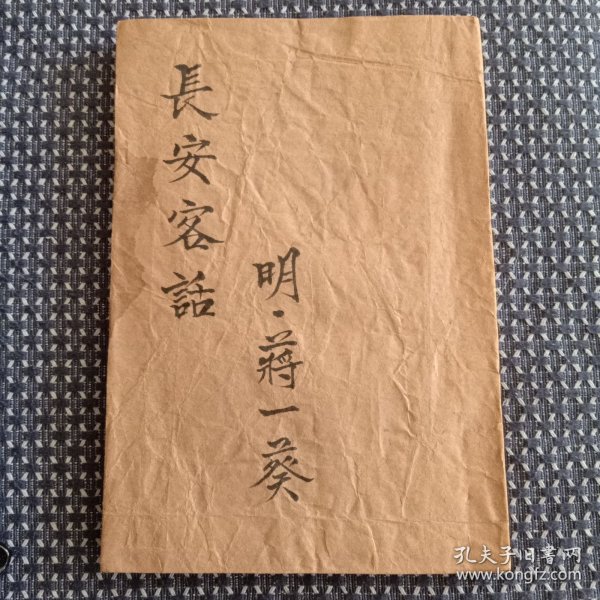 長安客話
明·蔣一葵
孔夫子旧書网
www.kongfz.com